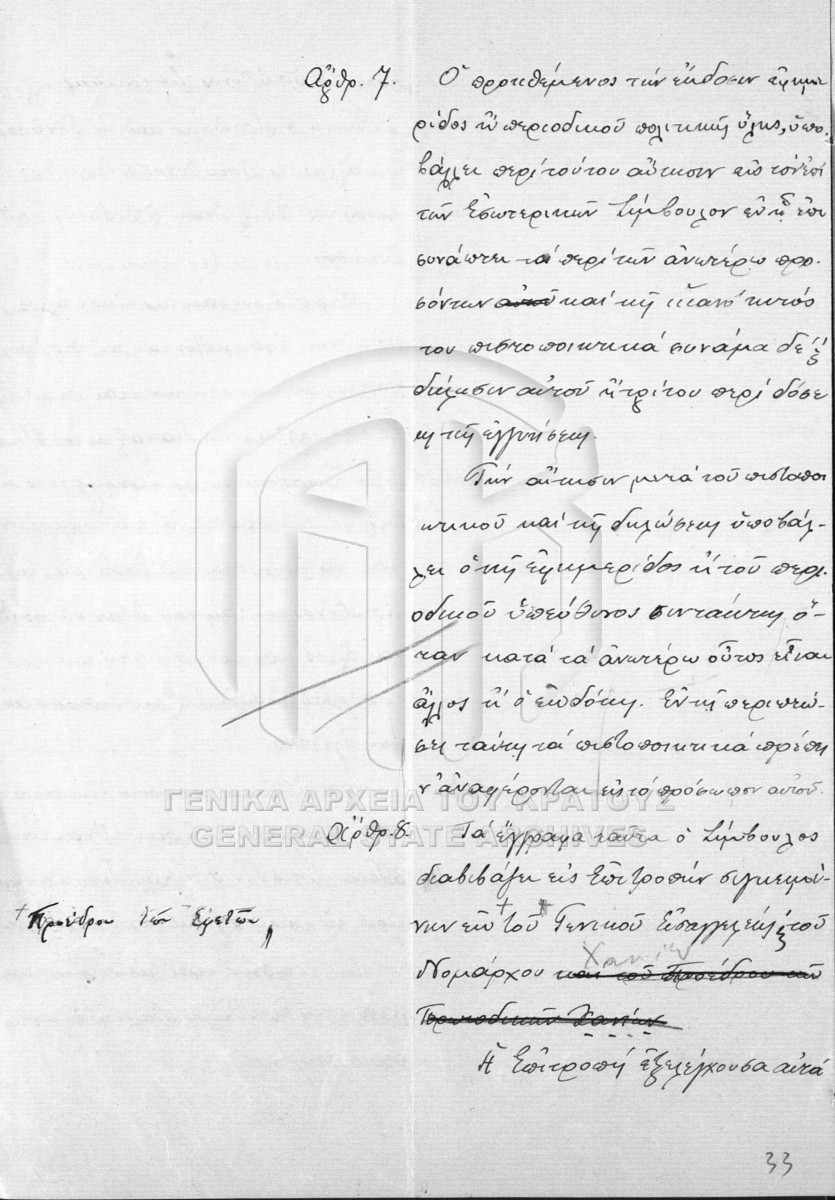 Ἄρθρ. 7. Ὁ προτιθέμενος τὴν ἔκδοσιν ἐφημε
ρίδος ἢ περιοδικοῦ πολιτικῆς ὕλης, ὑπο
βάλλει περὶ τούτου αἴτησιν εἰς τὸν ἐπὶ
τῶν Ἐσωτερικῶν Σύμβουλον ἐν ᾗ ἐπι
συνάπτει τὰ περὶ τῶν ἀνωτέρω προ-
σόντων αὐτοῦ καὶ τῆς ἱκανότητός
του πιστοποιητικὰ συνάμα δὲ καὶ
δήλωσιν αὐτοῦ ἢ τρίτου περὶ δόσε
ως τῆς ἐγγυήσεως.
Τὴν αἴτησιν μετὰ τοῦ πιστοποι
ητικοῦ καὶ τῆς δηλώσεως ὑποβάλ-
λει ὁ τῆς ἐφημερίδος ἢ τοῦ περι
οδικοῦ ὑπεύθυνος συντάκτης ὅ-
ταν κατὰ τὰ ἀνωτέρω οὗτος εἶναι
ἄλλος ἢ ὁ ἐκδότης. Ἐν τῇ περιπτώ-
σει ταύτῃ τὰ πιστοποιητικὰ πρέπει
ν' ἀναφέρονται εἰς τὸ πρόσωπον αὐτοῦ.
ΓΕΝΙΚΑ ΑΡΧΕΙΑ ΤΟΥ ΚΡΑΤΟΥΣ
GENERAL STATE ARCHIVES
Ἄρθρ. 8 Τὰ ἔγγραφα ταῦτα ὁ Σύμβουλος
διαβιβάζει εἰς Ἐπιτροπὴν συγκειμέ-
νην ἐκ + τοῦ Γενικοῦ Εἰσαγγελέως καὶ τοῦ
+ Προέδρου τῶν Ἐφετῶν
Χανίων
Νομάρχου καὶ τοῦ Προέδρου τῶν
Πρωτοδικῶν Χανίων
Ἡ Ἐπιτροπὴ ἐξελέγχουσα αὐτὰ
33